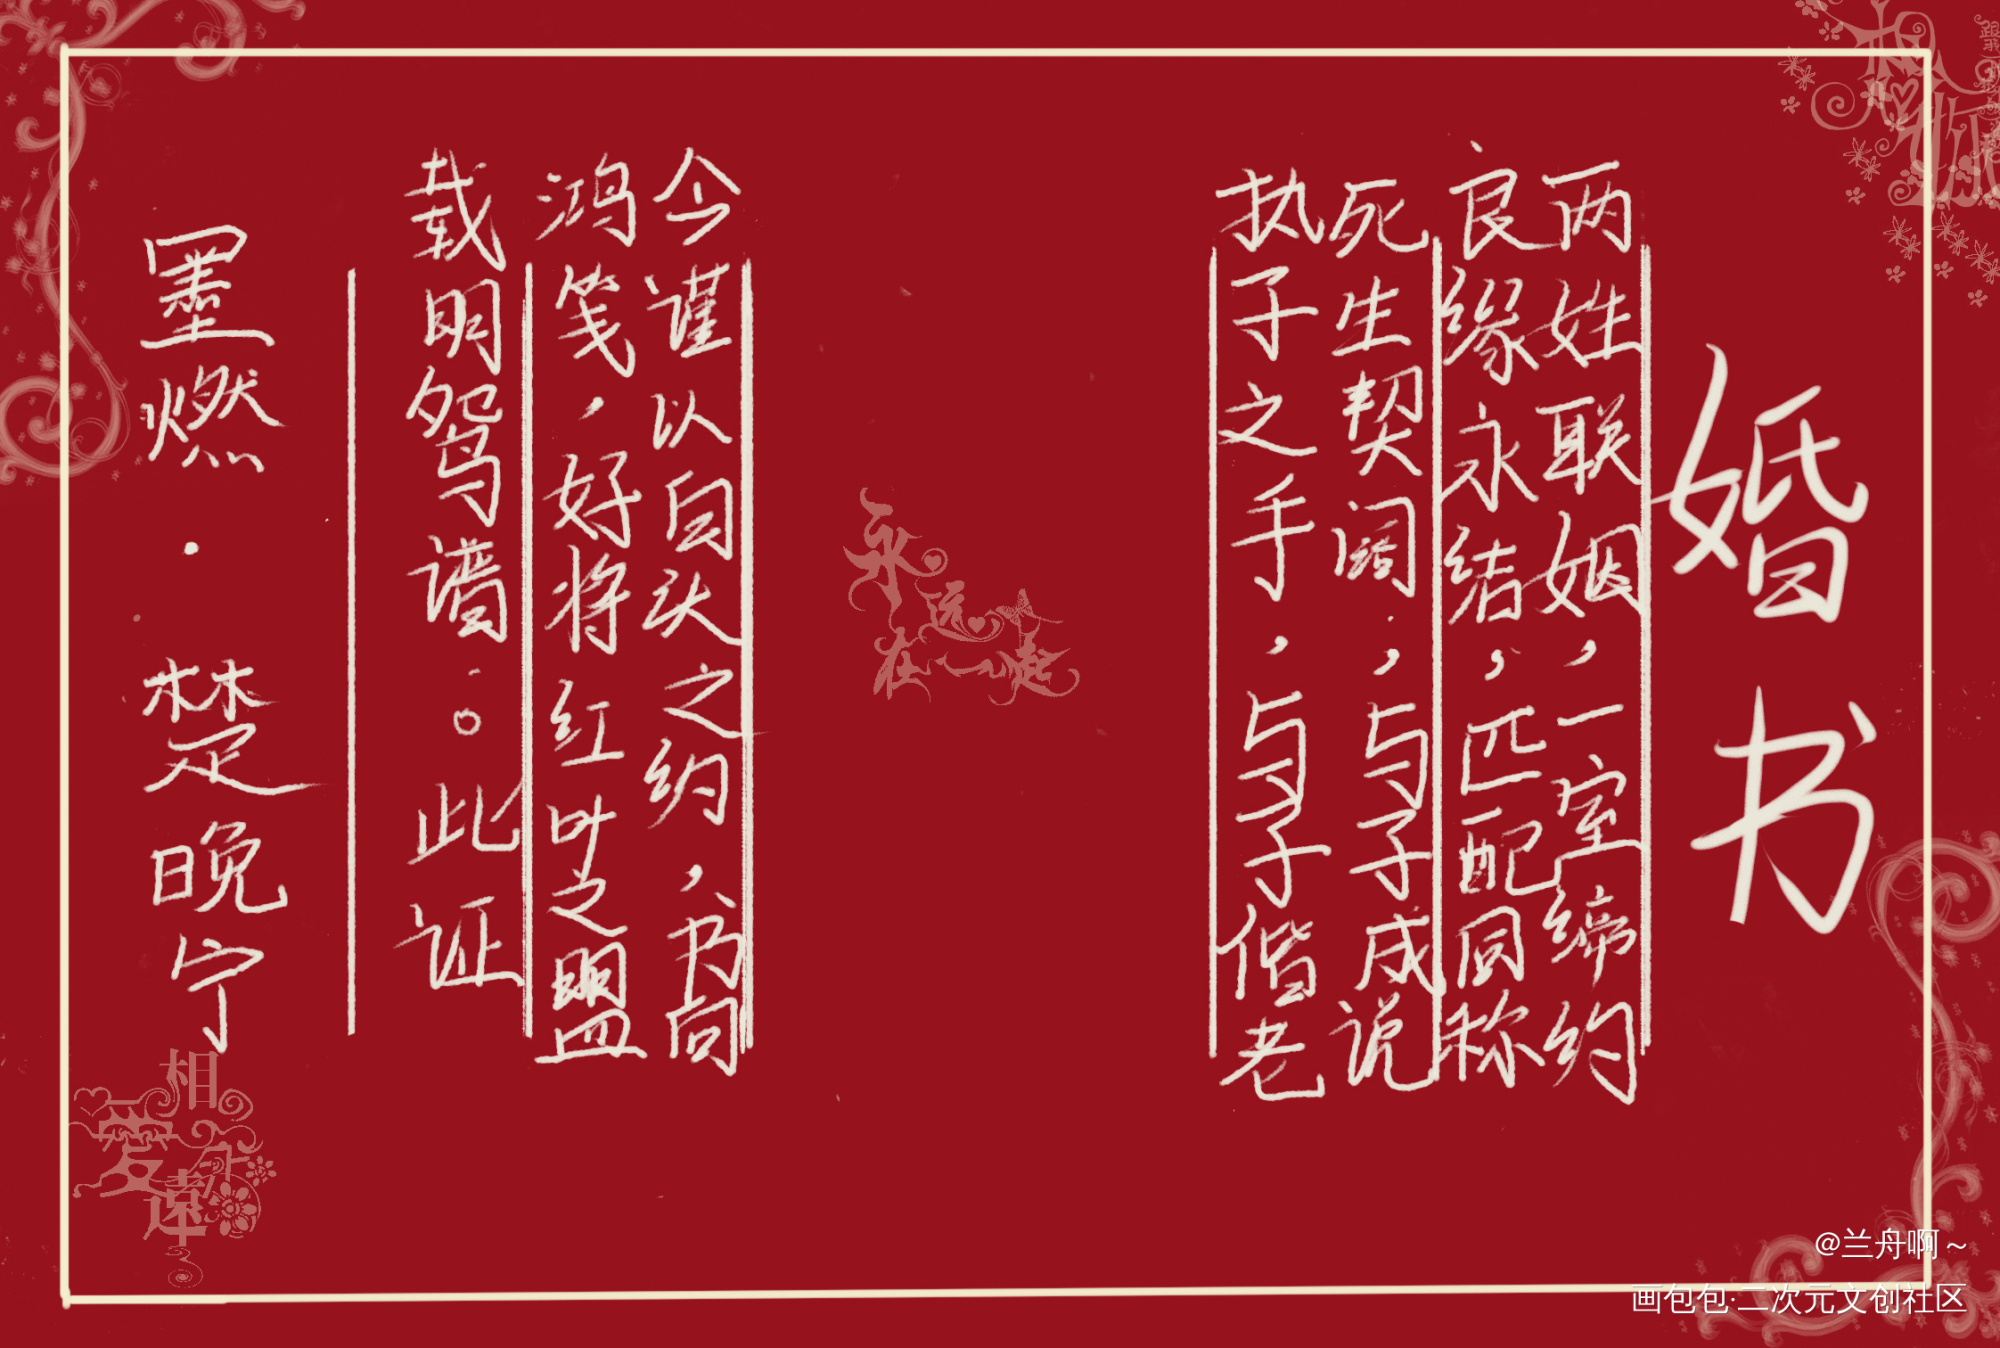 婚书
两姓联姻，一室缔约
良缘永结，匹配同称
死生契阔，与子成说
执子之手，与子偕老
永远在一起
今谨以白头之约，书向
鸿笺，好将红叶之盟
载明鸳谱。此证
墨燃·楚晚宁
相爱永远
@兰舟啊～
画包包·二次元文创社区